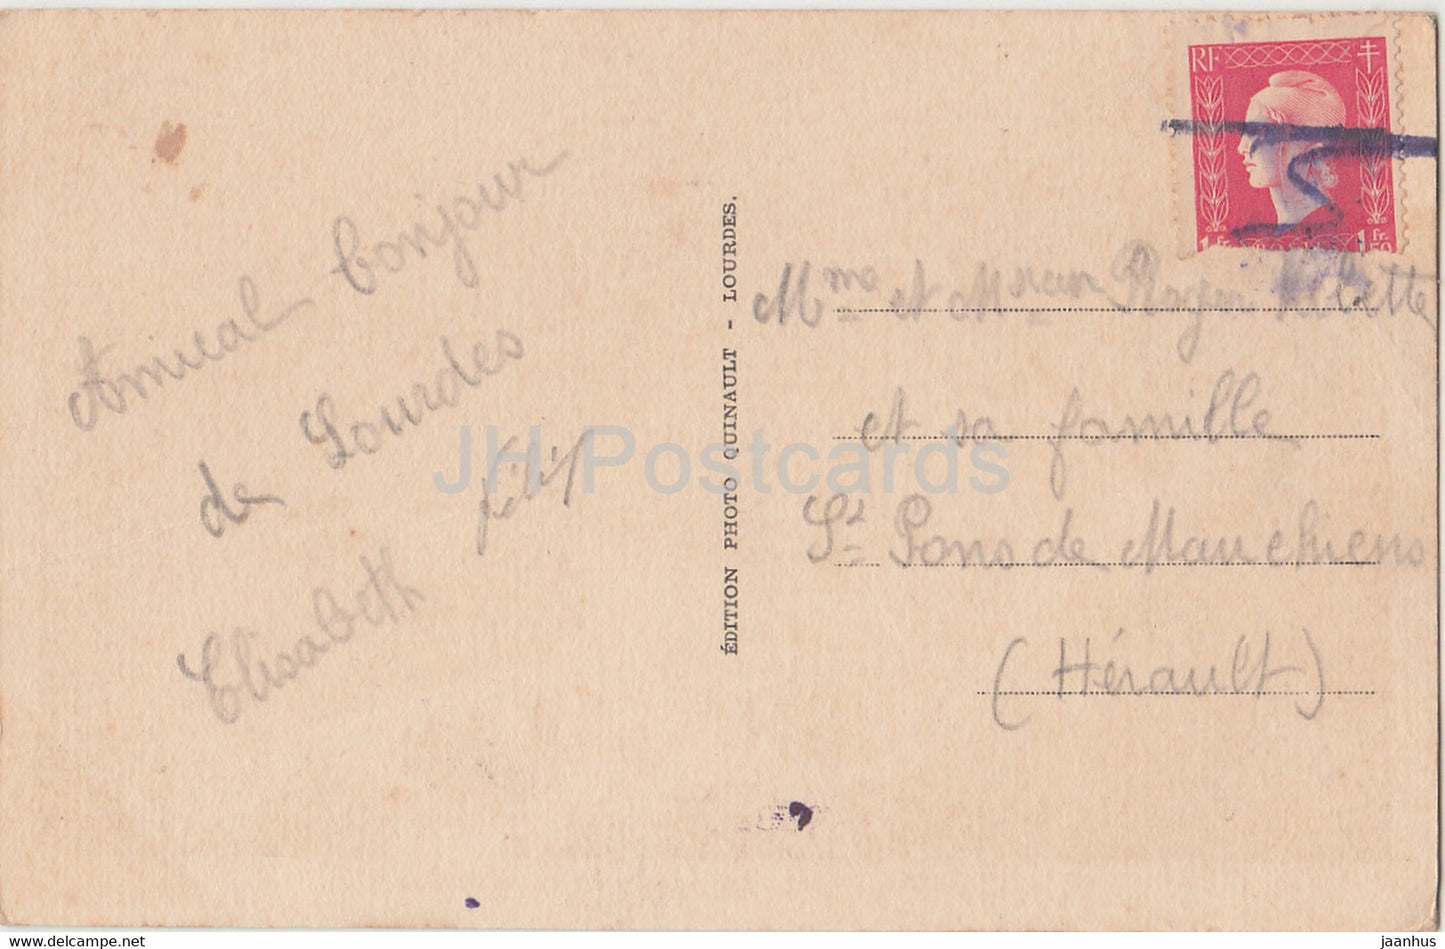 Amical bonjour
de Lourdes
Elisabeth
ÉDITION PHOTO QUINAULT - LOURDES.
RF
1 Fr
1 Fr. 50
Mme et Mr Roger
et sa famille
St Pons de Mauchiens
(Hérault)
JH Postcards
hippostcard.com
jaanhus